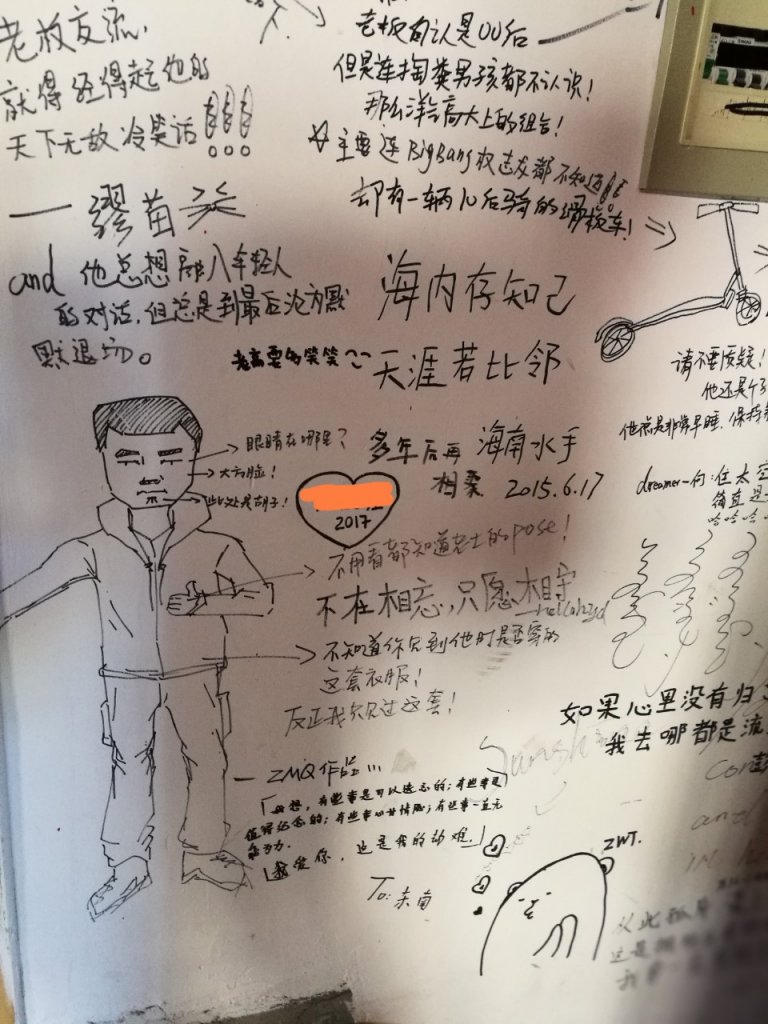 老板自认是00后
但是连掏粪男孩都不认识！
那么洋气高大上的组合！
主要连BigBang权志龙都不知道！！
却有一辆10后骑的滑板车！
就得经得起他的
天下无敌冷笑话！！！
一缪苗
and 他总想 年轻人
的对话，但总是到最后沦为默
默退场。
海内存知己
天涯若比邻
老高要多笑笑
请不要质疑！
他还是个
他总是非常早睡，保持
眼睛在哪里？
大方脸！
此处是胡子！
多年后再 海南水手
相聚 2015.6.17
2017
dreamer一向：住太空
简直是
哈哈哈哈
不用看都知道老土的pose！
不在相忘，只愿相守
不知道你见到他时是否穿的
这套衣服！
反正我只见过这套！
如果心里没有归
我去哪都是流
一ZMQ作品…
有些事是可以遗忘的；有些事是
值得纪念的；有些事心甘情愿；有些事一直无
能为力。
我爱你，这是我的劫难。
To：东南
ZWT.
从此孤单